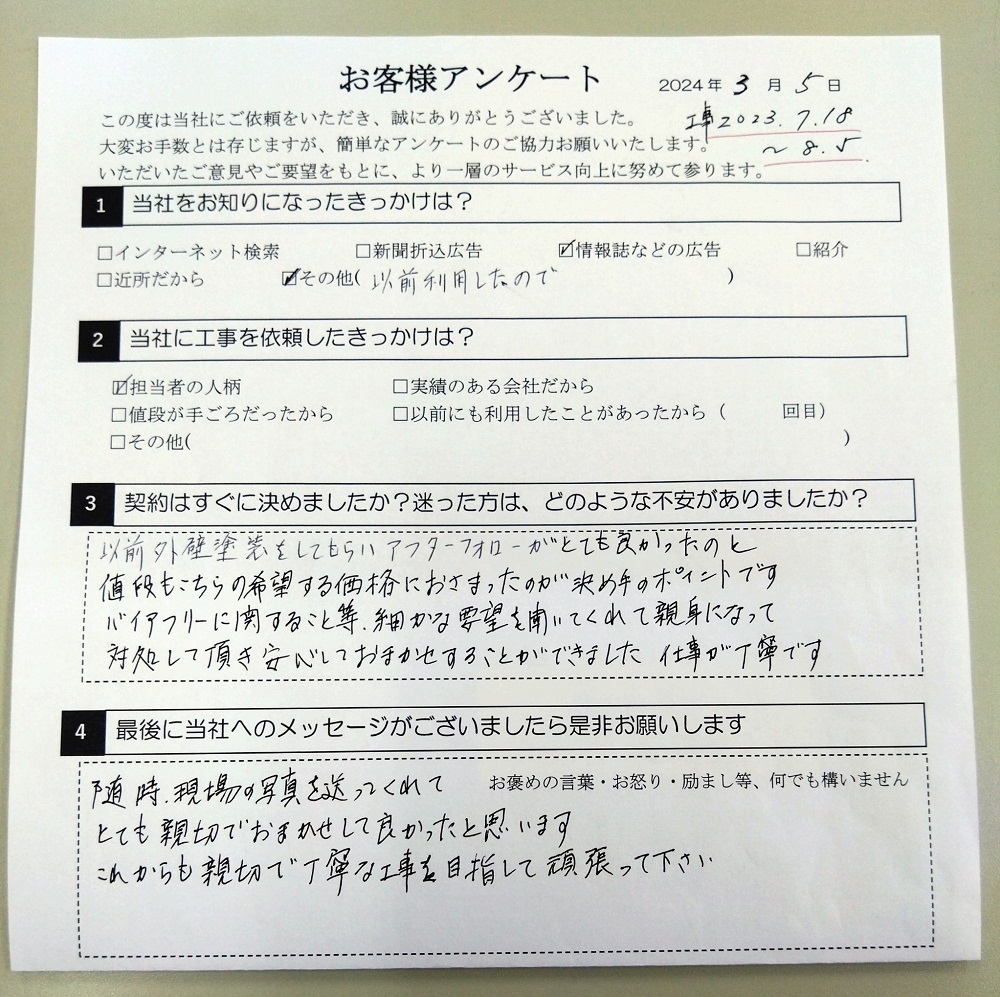 お客様アンケート 2024年 3 月 5 日
この度は当社にご依頼をいただき、誠にありがとうございました。 工事2023.7.18
大変お手数とは存じますが、簡単なアンケートのご協力お願いいたします。 ~8.5
いただいたご意見やご要望をもとに、より一層のサービス向上に努めて参ります。
1 当社をお知りになったきっかけは？
□インターネット検索 □新聞折込広告 ☑情報誌などの広告 □紹介
□近所だから ☑その他( 以前利用したので )
2 当社に工事を依頼したきっかけは？
☑担当者の人柄 □実績のある会社だから
□値段が手ごろだったから □以前にも利用したことがあったから（ 回目）
□その他( )
3 契約はすぐに決めましたか？迷った方は、どのような不安がありましたか？
以前外壁塗装をしてもらいアフターフォローがとても良かったのと
値段もこちらの希望する価格におさまったのが決め手のポイントです
バイアフリーに関すること等、細かな要望を聞いてくれて親身になって
対処して頂き安心しておまかせすることができました 仕事が丁寧です
4 最後に当社へのメッセージがございましたら是非お願いします
お褒めの言葉・お怒り・励まし等、何でも構いません
随時、現場の写真を送ってくれて
とても親切でおまかせして良かったと思います
これからも親切で丁寧な工事を目指して頑張って下さい